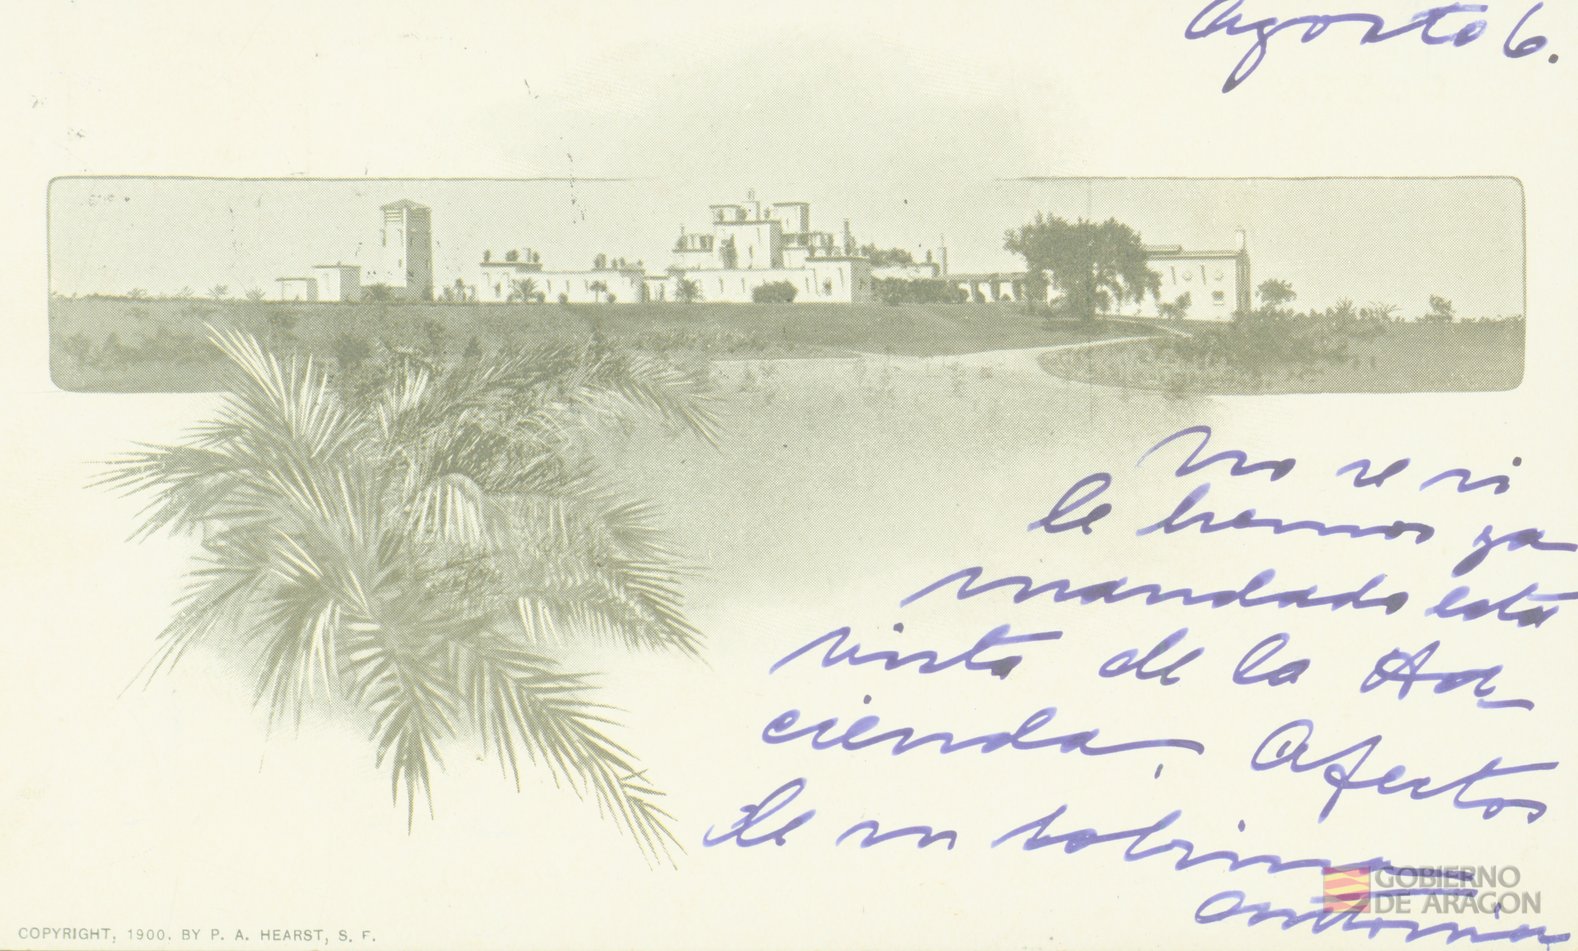 Agosto 6.
No se si
le hemos ya
mandado esta
vista de la Ha
cienda. Afectos
de su sobrina
Antonia
GOBIERNO
DE ARAGON
COPYRIGHT, 1900. BY P. A. HEARST, S. F.